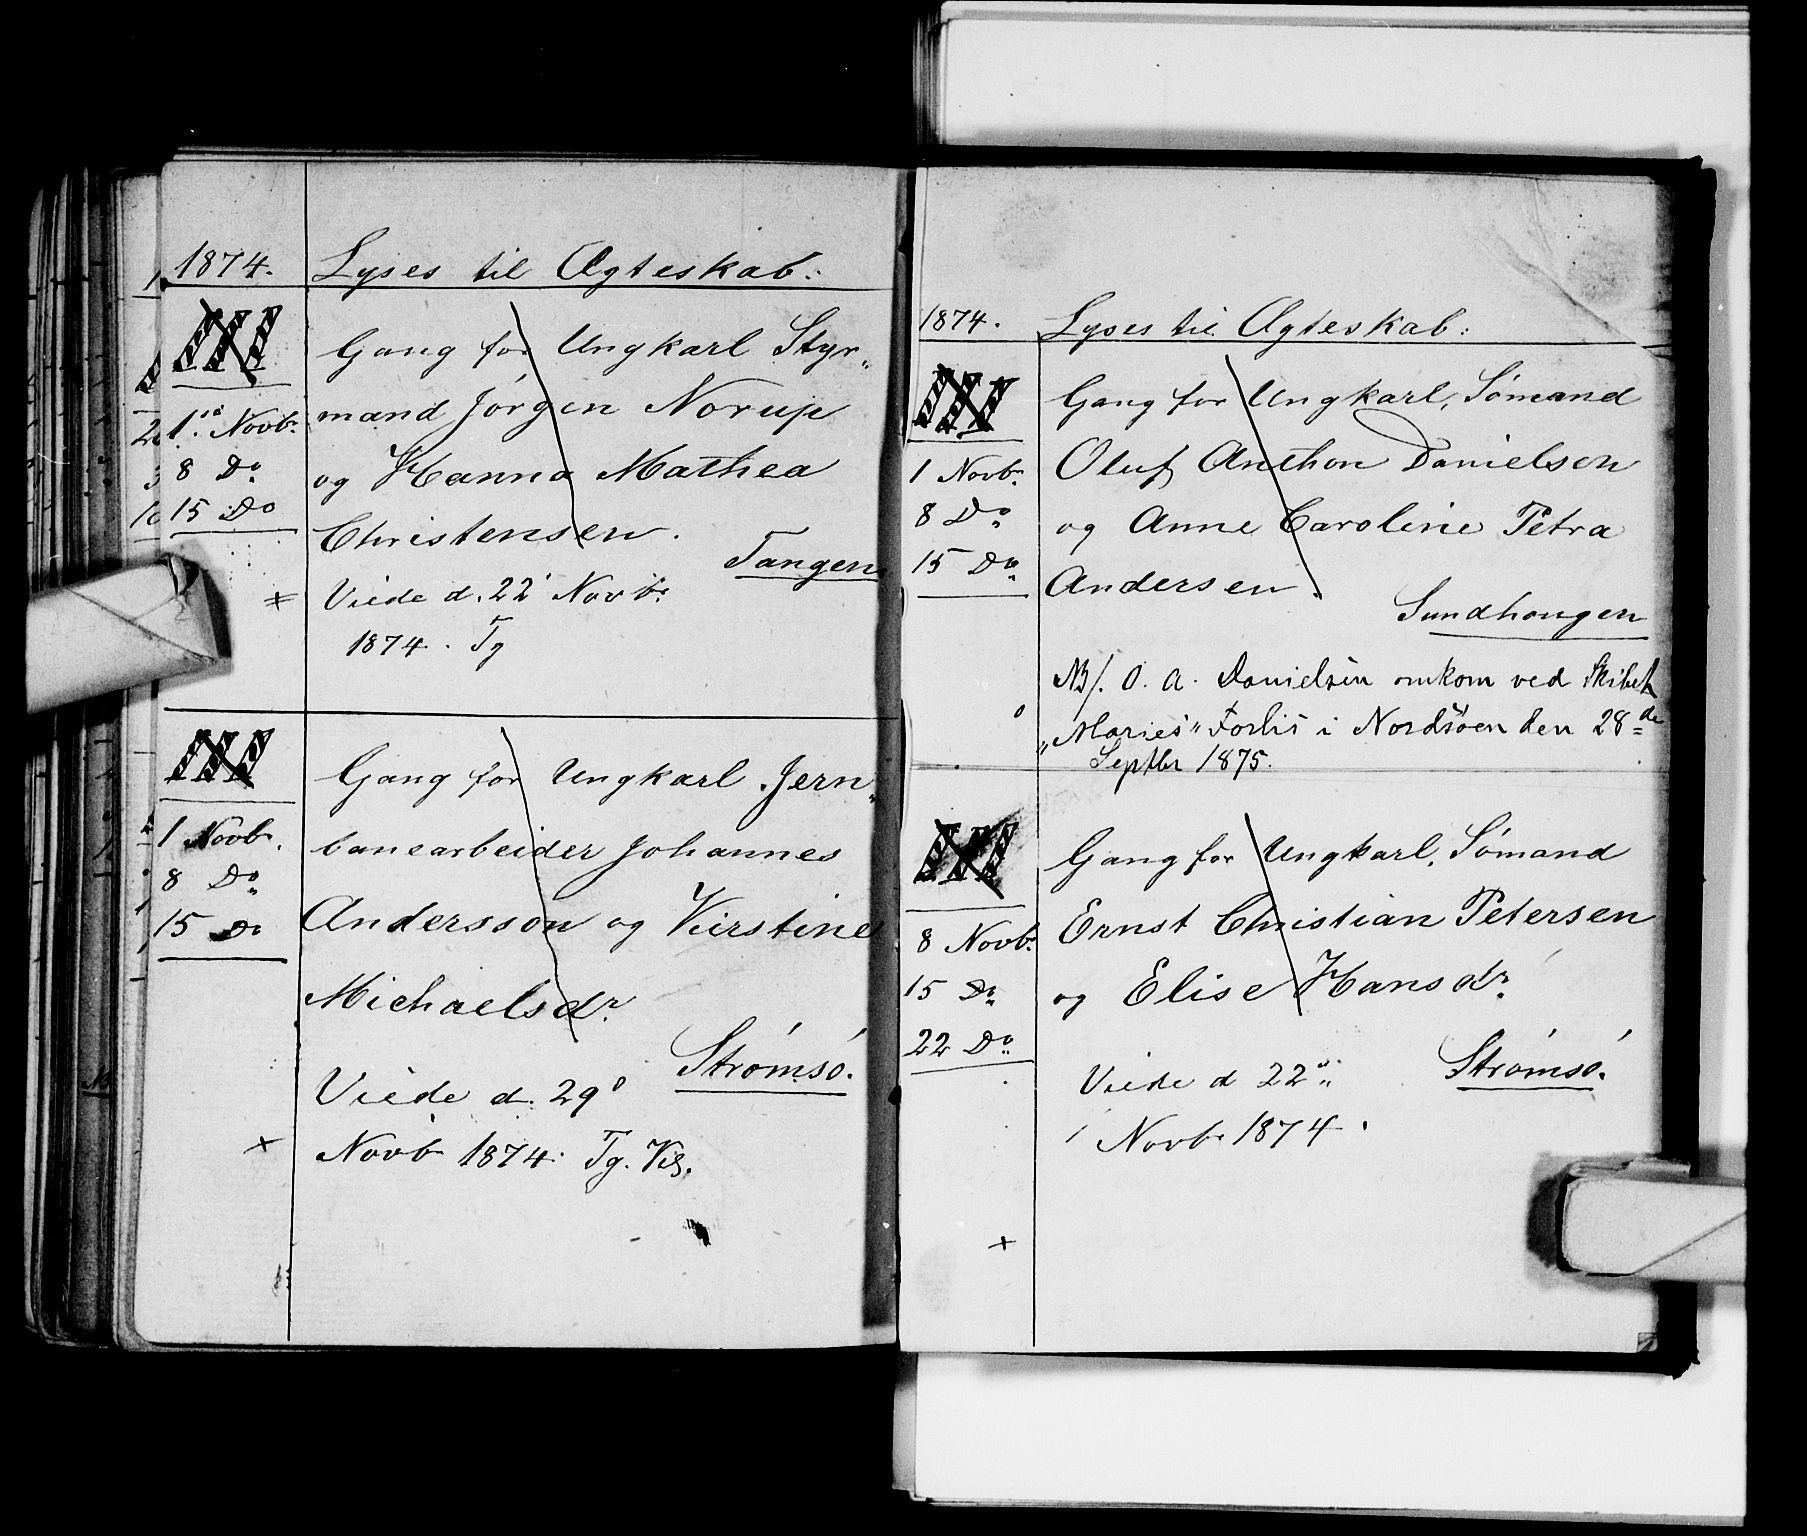 1874. Lyses til Ægteskab:
III
Gang for Ungkarl Styr„
mand Jörgen Norup
og Hanna Mathea
Christensen.
Tangen
1 Novb.
8 Do
15 Do
Viede d. 22 Novb.
1874. Tg
III
Gang for Ungkarl Jern„
banearbeider Johannes
Andersson og Kirstine
Michaelsdr.
Strömsö.
1 Novb.
8 Do
15 Do
Viede d. 29
Novb 1874. Tg.
1874. Lyses til Ægteskab:
III
Gang for Ungkarl, Sömand
Oluf Anthon Danielsen
og Anne Caroline Petra
Andersen.
Sundhougen
1 Novb.
8 Do
15 Do
NB/. O. A. Danielsen omkom ved Skibet
„Maries“ Forlis i Nordsöen den 28de
Septbr 1875.
III
Gang for Ungkarl, Sömand
Ernst Christian Petersen
og Elise Hansdr.
Strömsö.
8 Novb.
15 Do
22 Do
Viede d 22
Novb. 1874.